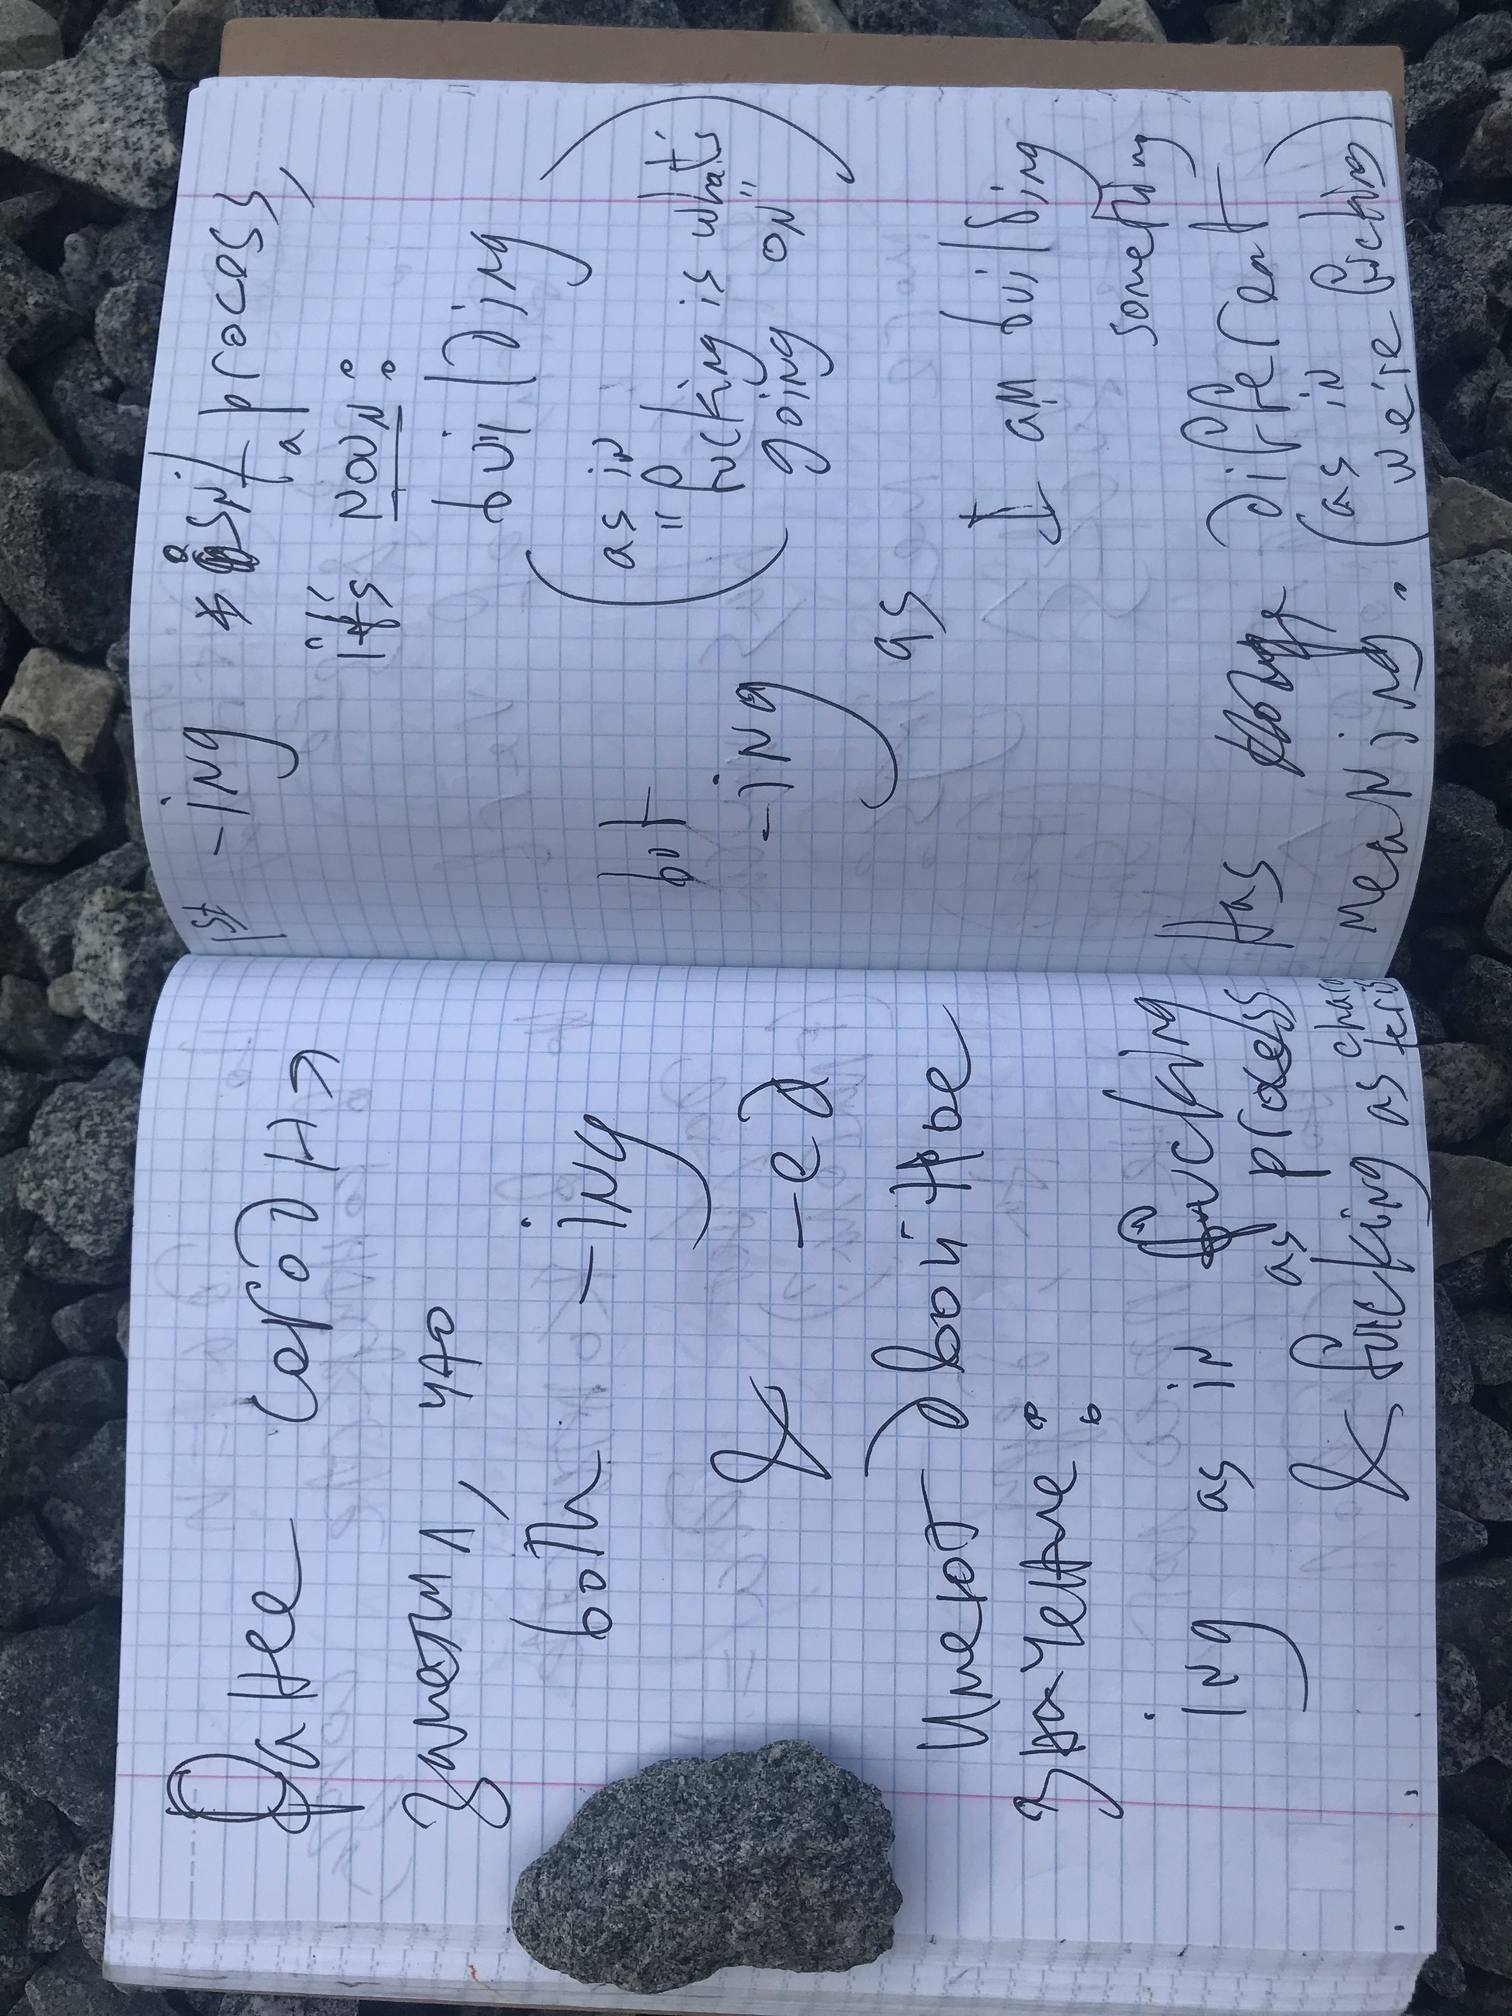 Фане сегодня
заметил, что
both -ing
& -ed
имеют двойные
значение:
ing as in fucking
as process
& fucking as charac
teris
1st -ing isn't a process,
it's noun:
building
(as in
"fucking is what's
going on")
but
-ing
as
I am building
something
Has different
meaning. (as in
we're fucking)